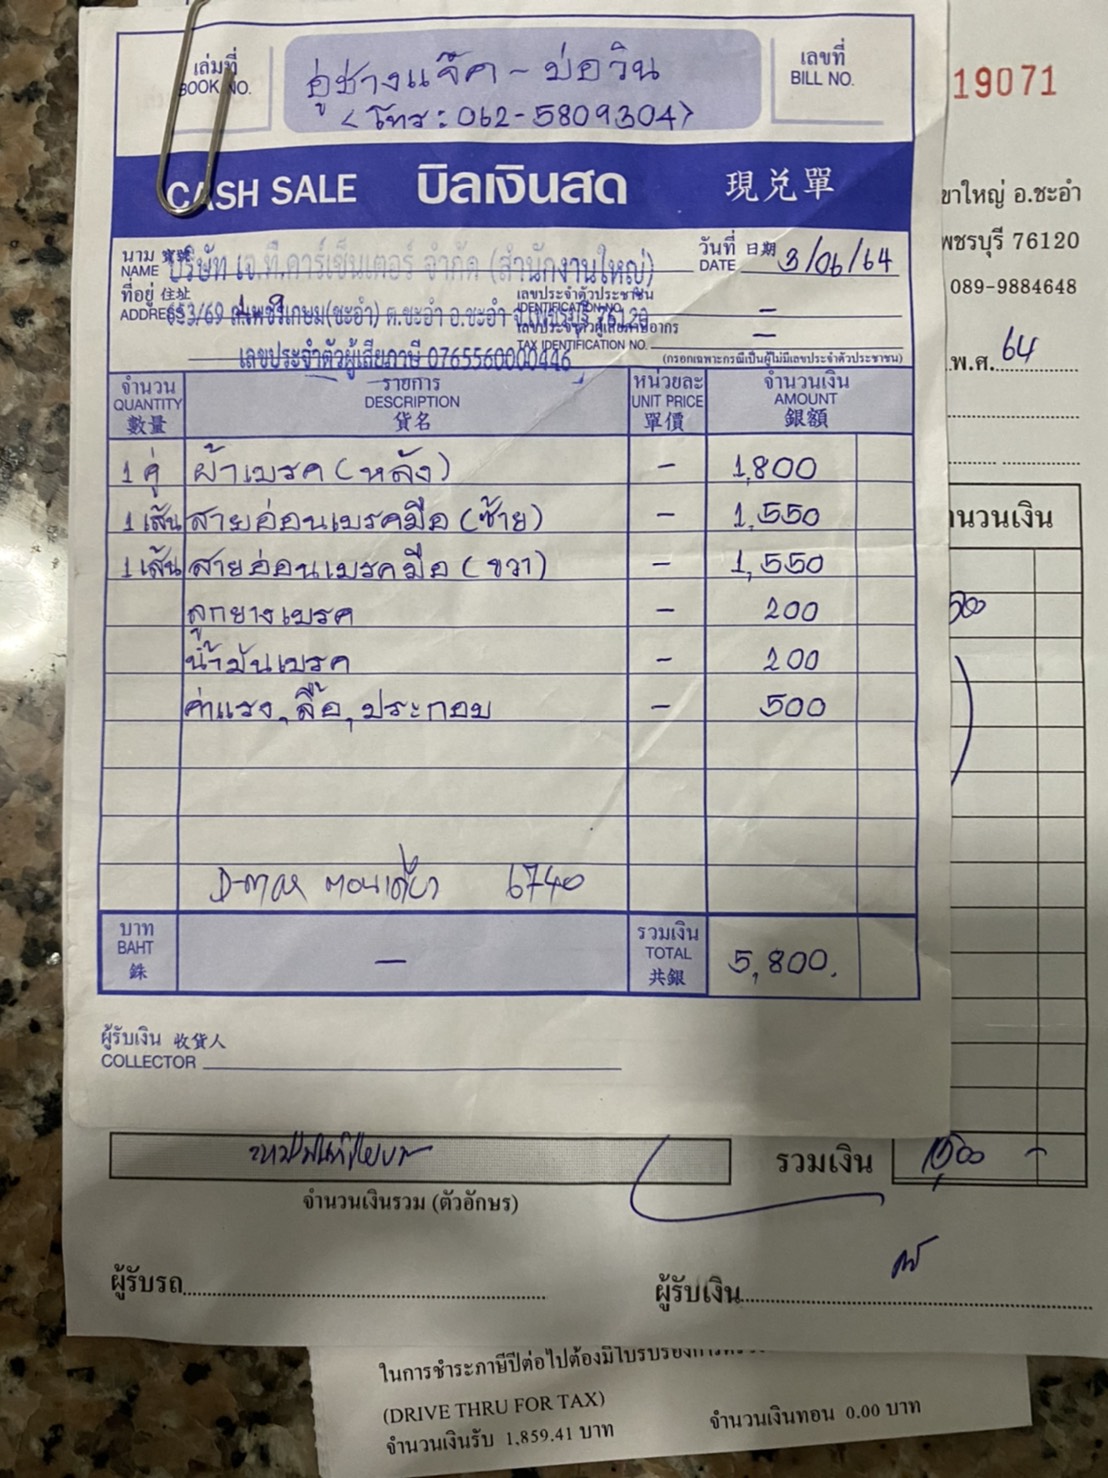 เล่มที่
BOOK NO.
อู่ช่างแจ๊ค - บ่อวิน
<โทร : 062-5809304>
เลขที่
BILL NO.
CASH SALE บิลเงินสด 現兑單
นาม 寶號
NAME บริษัท เจ.ที.คาร์เซ็นเตอร์ จำกัด (สำนักงานใหญ่)
วันที่ 日期
DATE 3/06/64
ที่อยู่ 住址
ADDRESS 653/69 ถ.เพชรเกษม(ชะอำ) ต.ชะอำ อ.ชะอำ จ.เพชรบุรี 76120
เลขประจำตัวประชาชน
IDENTIFICATION NO. –
เลขประจำตัวผู้เสียภาษีอากร
TAX IDENTIFICATION NO. –
เลขประจำตัวผู้เสียภาษี 0765560000446
(กรอกเฉพาะกรณีเป็นผู้ไม่มีเลขประจำตัวประชาชน)
จำนวน รายการ หน่วยละ จำนวนเงิน
QUANTITY DESCRIPTION UNIT PRICE AMOUNT
數量 貨名 單價 銀額
1 คู่ ผ้าเบรค (หลัง) – 1,800
1 เส้น สายอ่อนเบรคมือ (ซ้าย) – 1,550
1 เส้น สายอ่อนเบรคมือ (ขวา) – 1,550
ลูกยางเบรค – 200
น้ำมันเบรค – 200
ค่าแรง, ลื้อ, ประกอบ – 500
D-max ตอนเดียว 6740
บาท รวมเงิน
BAHT – TOTAL 5,800.
銖 共銀
ผู้รับเงิน 收貨人
COLLECTOR
19071
ขาใหญ่ อ.ชะอำ
พชรบุรี 76120
089-9884648
พ.ศ. 64
านวนเงิน
รวมเงิน
จำนวนเงินรวม (ตัวอักษร)
ผู้รับรถ
ผู้รับเงิน
ในการชำระภาษีปีต่อไปต้องมีใบรับรองการตรวจ
(DRIVE THRU FOR TAX)
จำนวนเงินรับ 1,859.41 บาท จำนวนเงินทอน 0.00 บาท